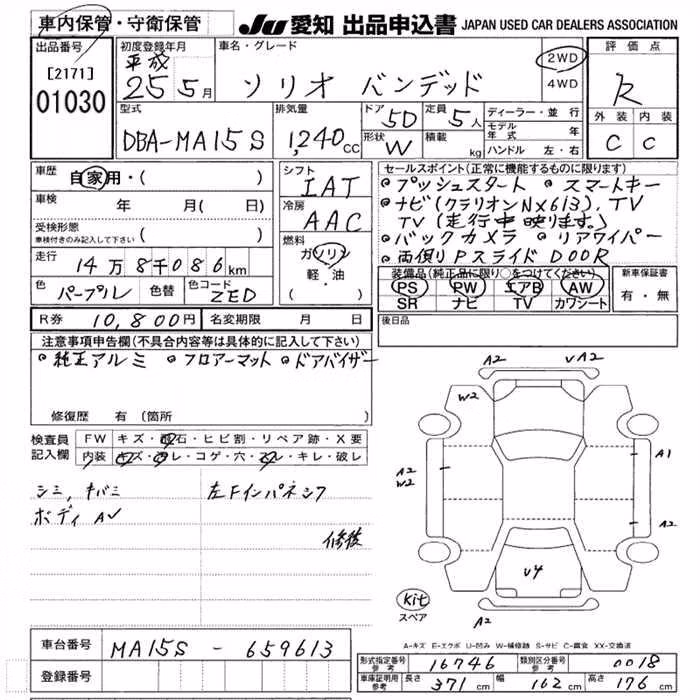 車内保管・守衛保管
JU 愛知 出品申込書 JAPAN USED CAR DEALERS ASSOCIATION
出品番号 初度登録年月 車名・グレード 評価点
[2171] 平成 2WD
01030 25年5月 ソリオ バンデッド 4WD R
型式 排気量 ドア 5D 定員 5人 ディーラー・並行 外装 内装
DBA-MA15S 1,240cc 形状 W 積載 kg モデル年式 年 C C
ハンドル 左・右
車歴 自家用・( ) シフト セールスポイント(正常に機能するものに限ります)
IAT ・プッシュスタート ・スマートキー
車検 年 月( 日) 冷房 ・ナビ(クラリオンNX613), TV
受検形態 AAC TV(走行中映ります。)
車検付きのみ記入して下さい ( )
走行 14万8千086km 燃料 ・バックカメラ ・リアワイパー
ガソリン ・両側PスライドDOOR
色 パープル 色替 色コード ZED 軽・油 装備品(純正品に限り○をつけてください) 新車保証書
・( ) PS PW エアB AW 有・無
SR ナビ TV カワシート
R券 10,800円 名変期限 月 日 後日品
注意事項申告欄(不具合内容等は具体的に記入して下さい)
・純正アルミ ・フロアーマット ・ドアバイザー
修復歴 有(箇所
検査員 FW キズ・飛石・ヒビ割・リペア跡・X要
記入欄 内装 キズ・汚レ・コゲ・穴・スレ・キレ・破レ
シミ, キバミ 左Fインパネシワ
ボディ A✓
修後
A2 ✓A2
W2
A1
A2
W2
A2
✓4
Kit
スペア
A2
A-キズ E-エクボ U-凹み W-補修跡 S-サビ C-腐食 XX-交換済
車台番号 MA15S - 659613
登録番号
形式指定番号 参考 16746 類別区分番号 参考 0018
車庫証明用 参考 長さ 371cm 幅 162cm 高さ 176cm